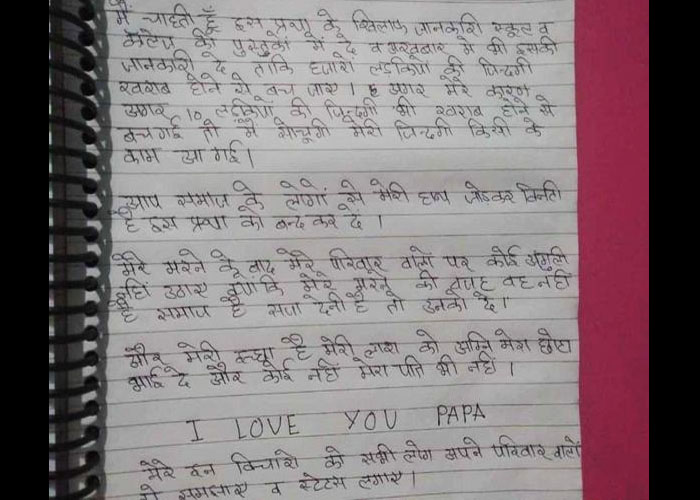 मैं चाहती हूँ इस प्रथा के खिलाफ जानकारी स्कूल व
कालेज की पुस्तको में दे व अखबार में भी इसकी
जानकारी दे ताकि हजारों लड़कियों की जिन्दगी
खराब होने से बच जाए। अगर मेरे कारण
अगर 10 लड़कियों की जिन्दगी भी खराब होने से
बच गई तो मैं सोचूगी मेरी जिन्दगी किसी के
काम आ गई।
आप समाज के लोगों से मेरी हाथ जोड़कर विनती
है इस प्रथा को बन्द कर दे।
मेरे मरने के बाद मेरे परिवार वालों पर कोई अंगुली
नहिं उठाए क्योकि मेरे मरने की वजह वह नहिं
है समाज है सजा देनी है तो उनको दे।
और मेरी इच्छा है मेरी लाश को अग्नि मेरा छोटा
भाई दे और कोई नहिं मेरा पति भी नहिं।
I LOVE YOU PAPA
मेरे इन विचारो को सभी लोग अपने परिवार वालों
में समझाए व स्टेटस लगाए।